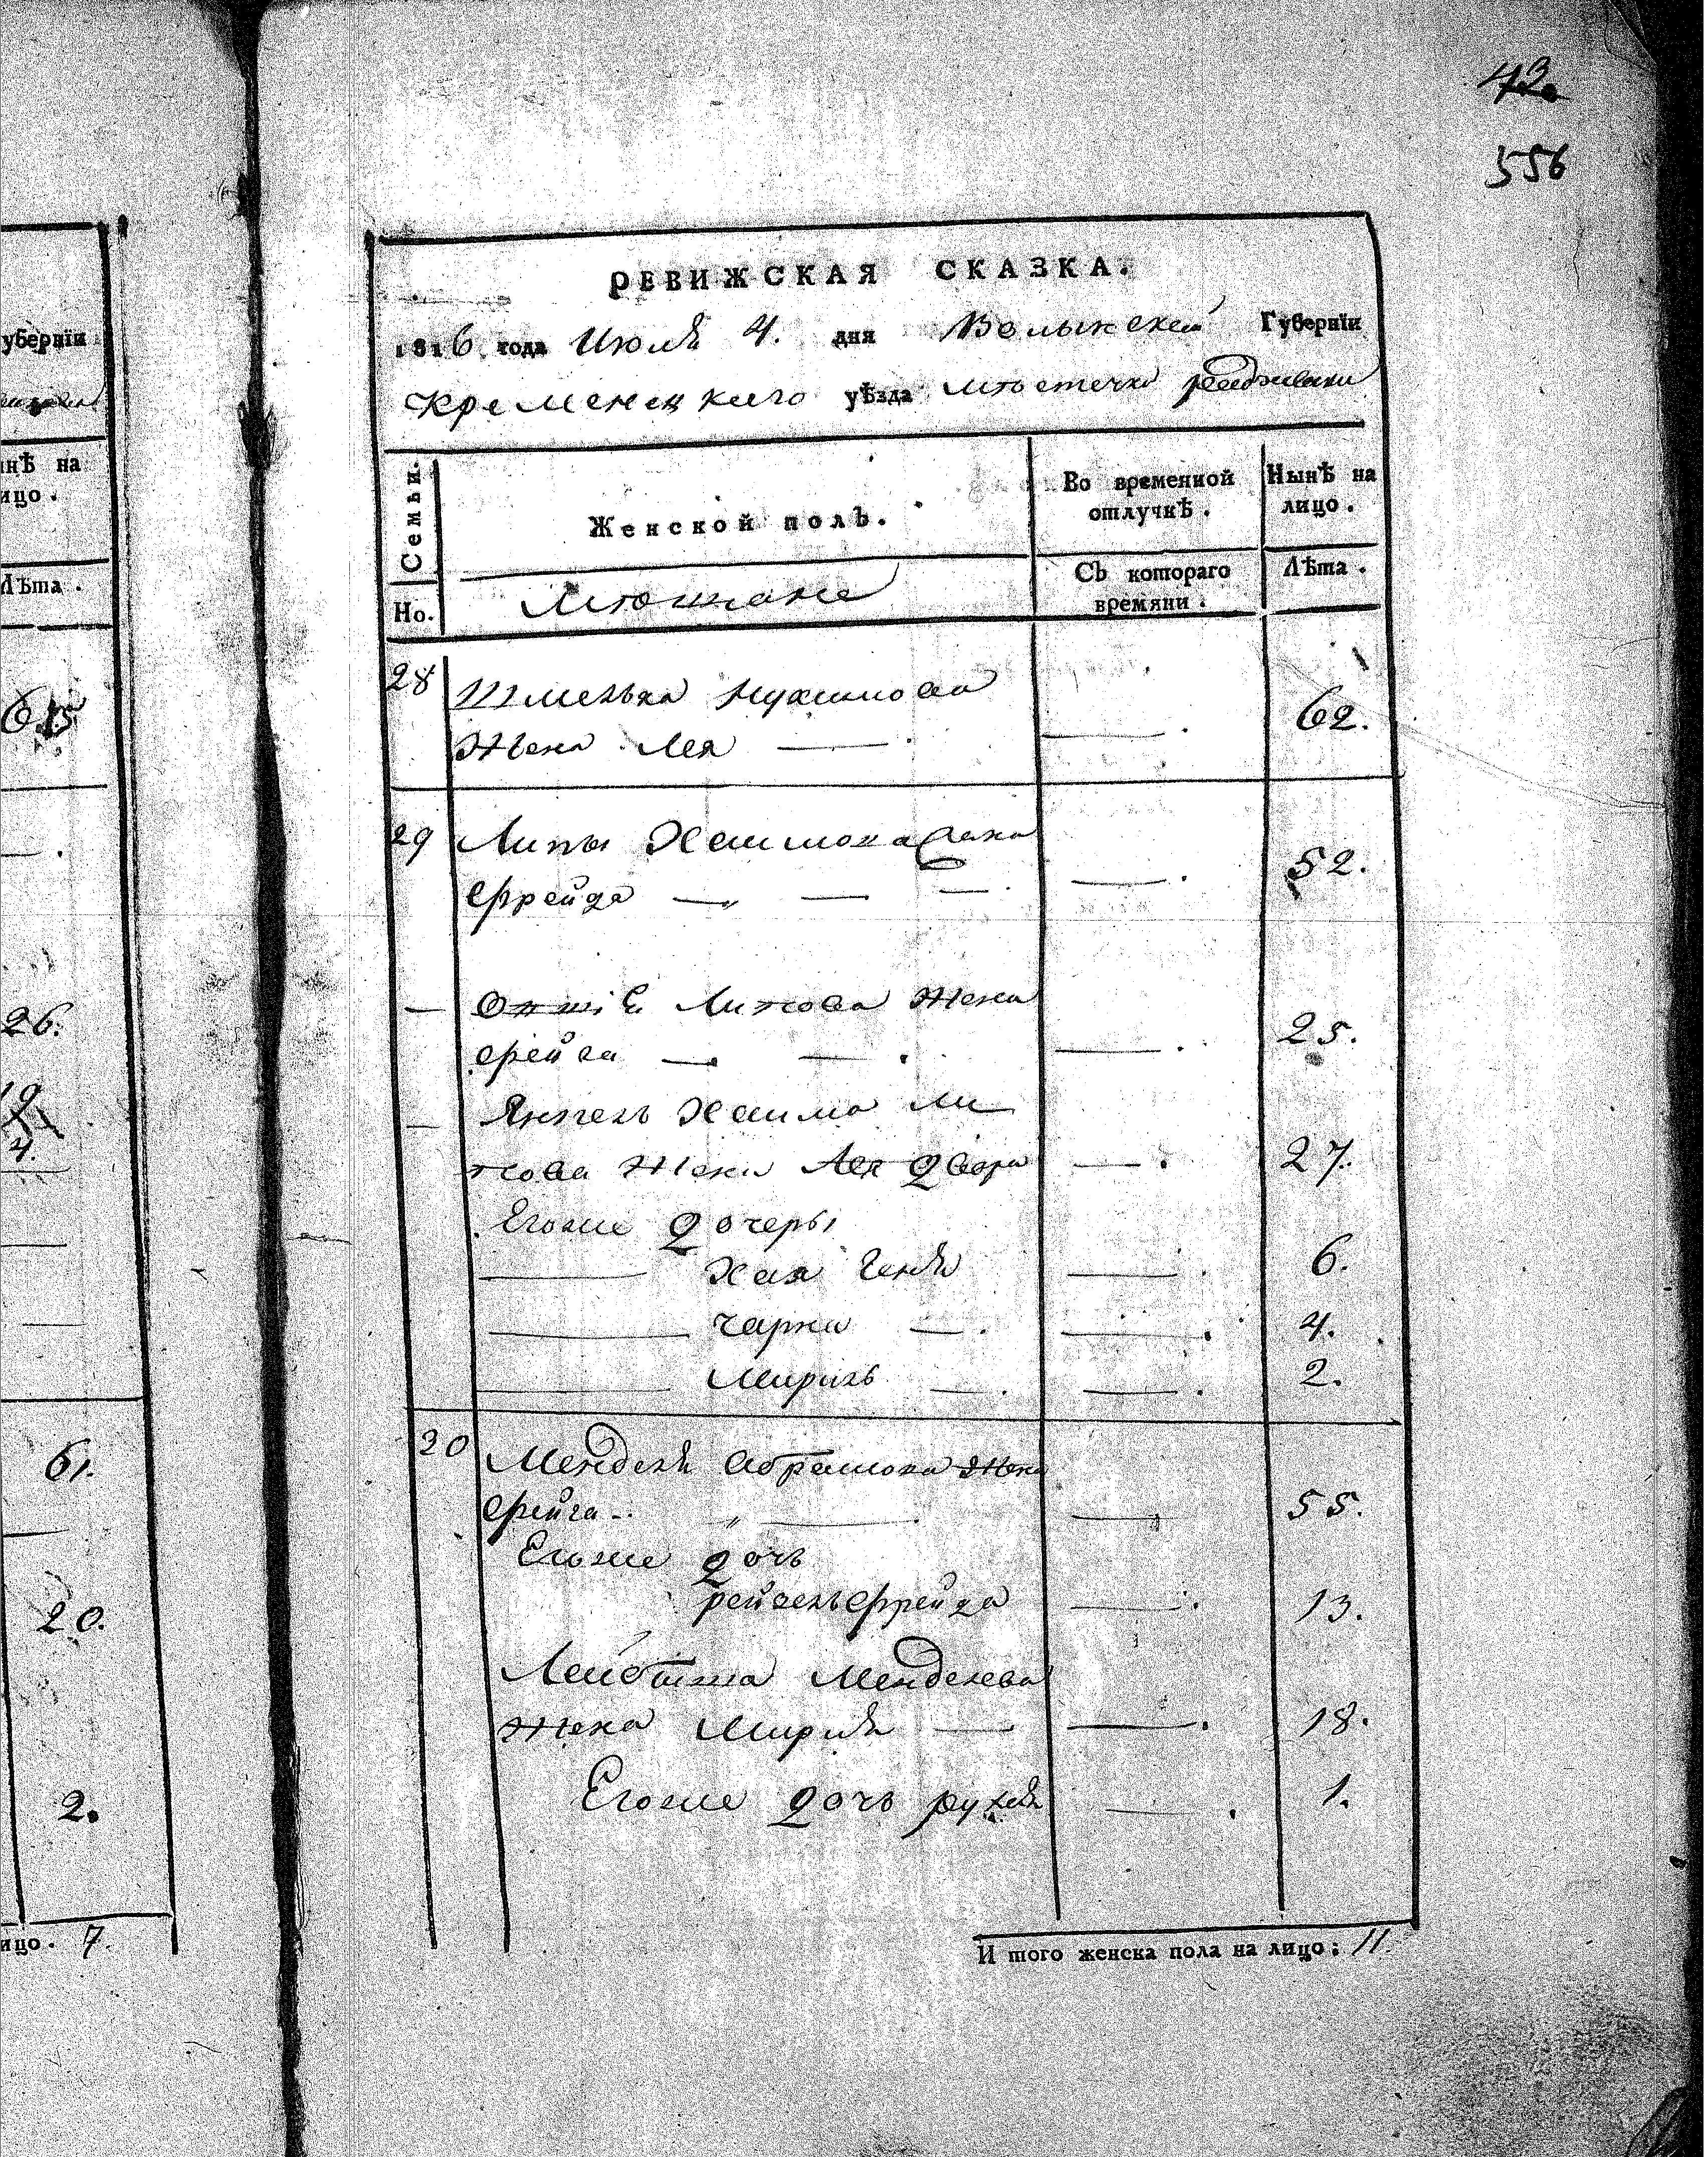 убернїи
нѣ на
ицо.
Лѣта.
6.15
26.
19
4.
61.
20.
2.
ицо. 7.
43.
556
РЕВИЖСКАЯ СКАЗКА.
1816 года Июля 4. дня Волынской Губернїи
Кременецкаго уѣзда мѣстечка
Семьи. Женской полъ. Во временной отлучкѣ. Нынѣ на лицо.
Но. Мѣщане Съ котораго времяни. Лѣта.
28 Шмелька Нухимова
жена Лея — — . 62.
29 Липы Хаимова жена
Фрейда — „ — — . — . 52.
— Липова жена
— . — . — . 25.
— Янкель Хаима Ли
пова жена Лея Двора — . 27.
Егоже дочеры
— Хая Геня — . 6.
— Чарна — . — . 4.
— Мирль — . — . 2.
30 Менделя Абрамова жена
Фейга — „ — . — 55.
Егоже дочь
рейзель Фрейда — . 13.
Лейбиша Менделева
жена Мирля — — . 18.
Егоже дочь рухля — . 1.
И того женска пола на лицо: 11.